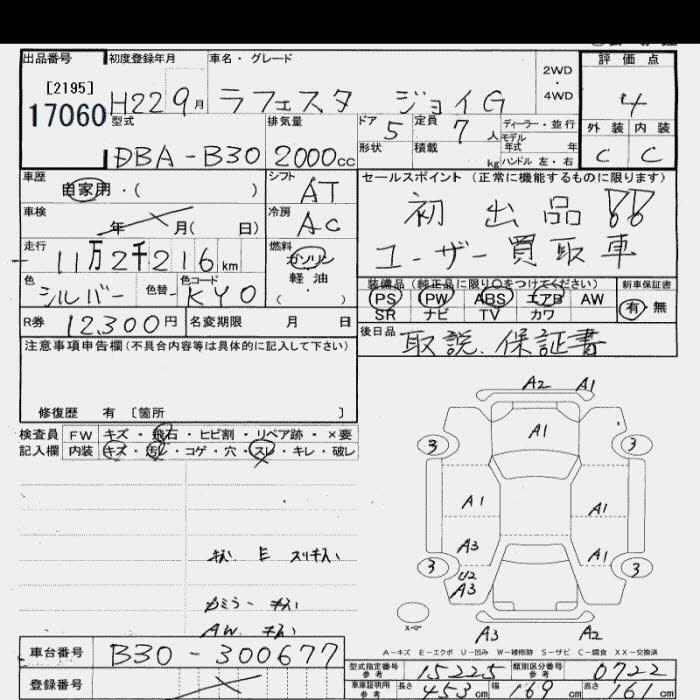 出品番号 初度登録年月 車名・グレード 2WD・4WD 評価点
[2195]
17060 H22 9月 ラフェスタ ジョイG 4
型式 排気量 ドア 5 定員 7人 ディーラー・並行 外装 内装
DBA-B30 2000cc 形状 積載 kg モデル年式 年 ハンドル 左・右 C C
車歴 自家用・( ) シフト AT セールスポイント (正常に機能するものに限ります)
車検 年 月( 日) 冷房 AC 初出品!!
走行 11万2千216km 燃料 ガソリン 軽油 ( ) ユーザー買取車
色 シルバー 色替 色コード KY0 装備品 (純正品に限り○をつけてください) 新車保証書
PS PW ABS エアB AW 有・無
R券 12,300円 名変期限 月 日 SR ナビ TV カワ
注意事項申告欄(不具合内容等は具体的に記入して下さい) 後日品 取説、保証書
修復歴 有 〔箇所 〕
検査員 FW キズ・飛石・ヒビ割・リペア跡・×要
記入欄 内装 キズ・汚レ・コゲ・穴・スレ・キレ・破レ
A2 A1
A1
3 3
A1 A1
A3 A1
3 U2 A3 3
スペア
A3 A2
キズ E スリキズ
カミラー キズ
AW キズ
A-キズ E-エクボ U-凹み W-補修跡 S-サビ C-腐食 XX-交換済
車台番号 B30-300677
型式指定番号 参考 15225 類別区分番号 参考 0722
登録番号
車庫証明用 参考 長さ 453cm 幅 169cm 高さ 160cm